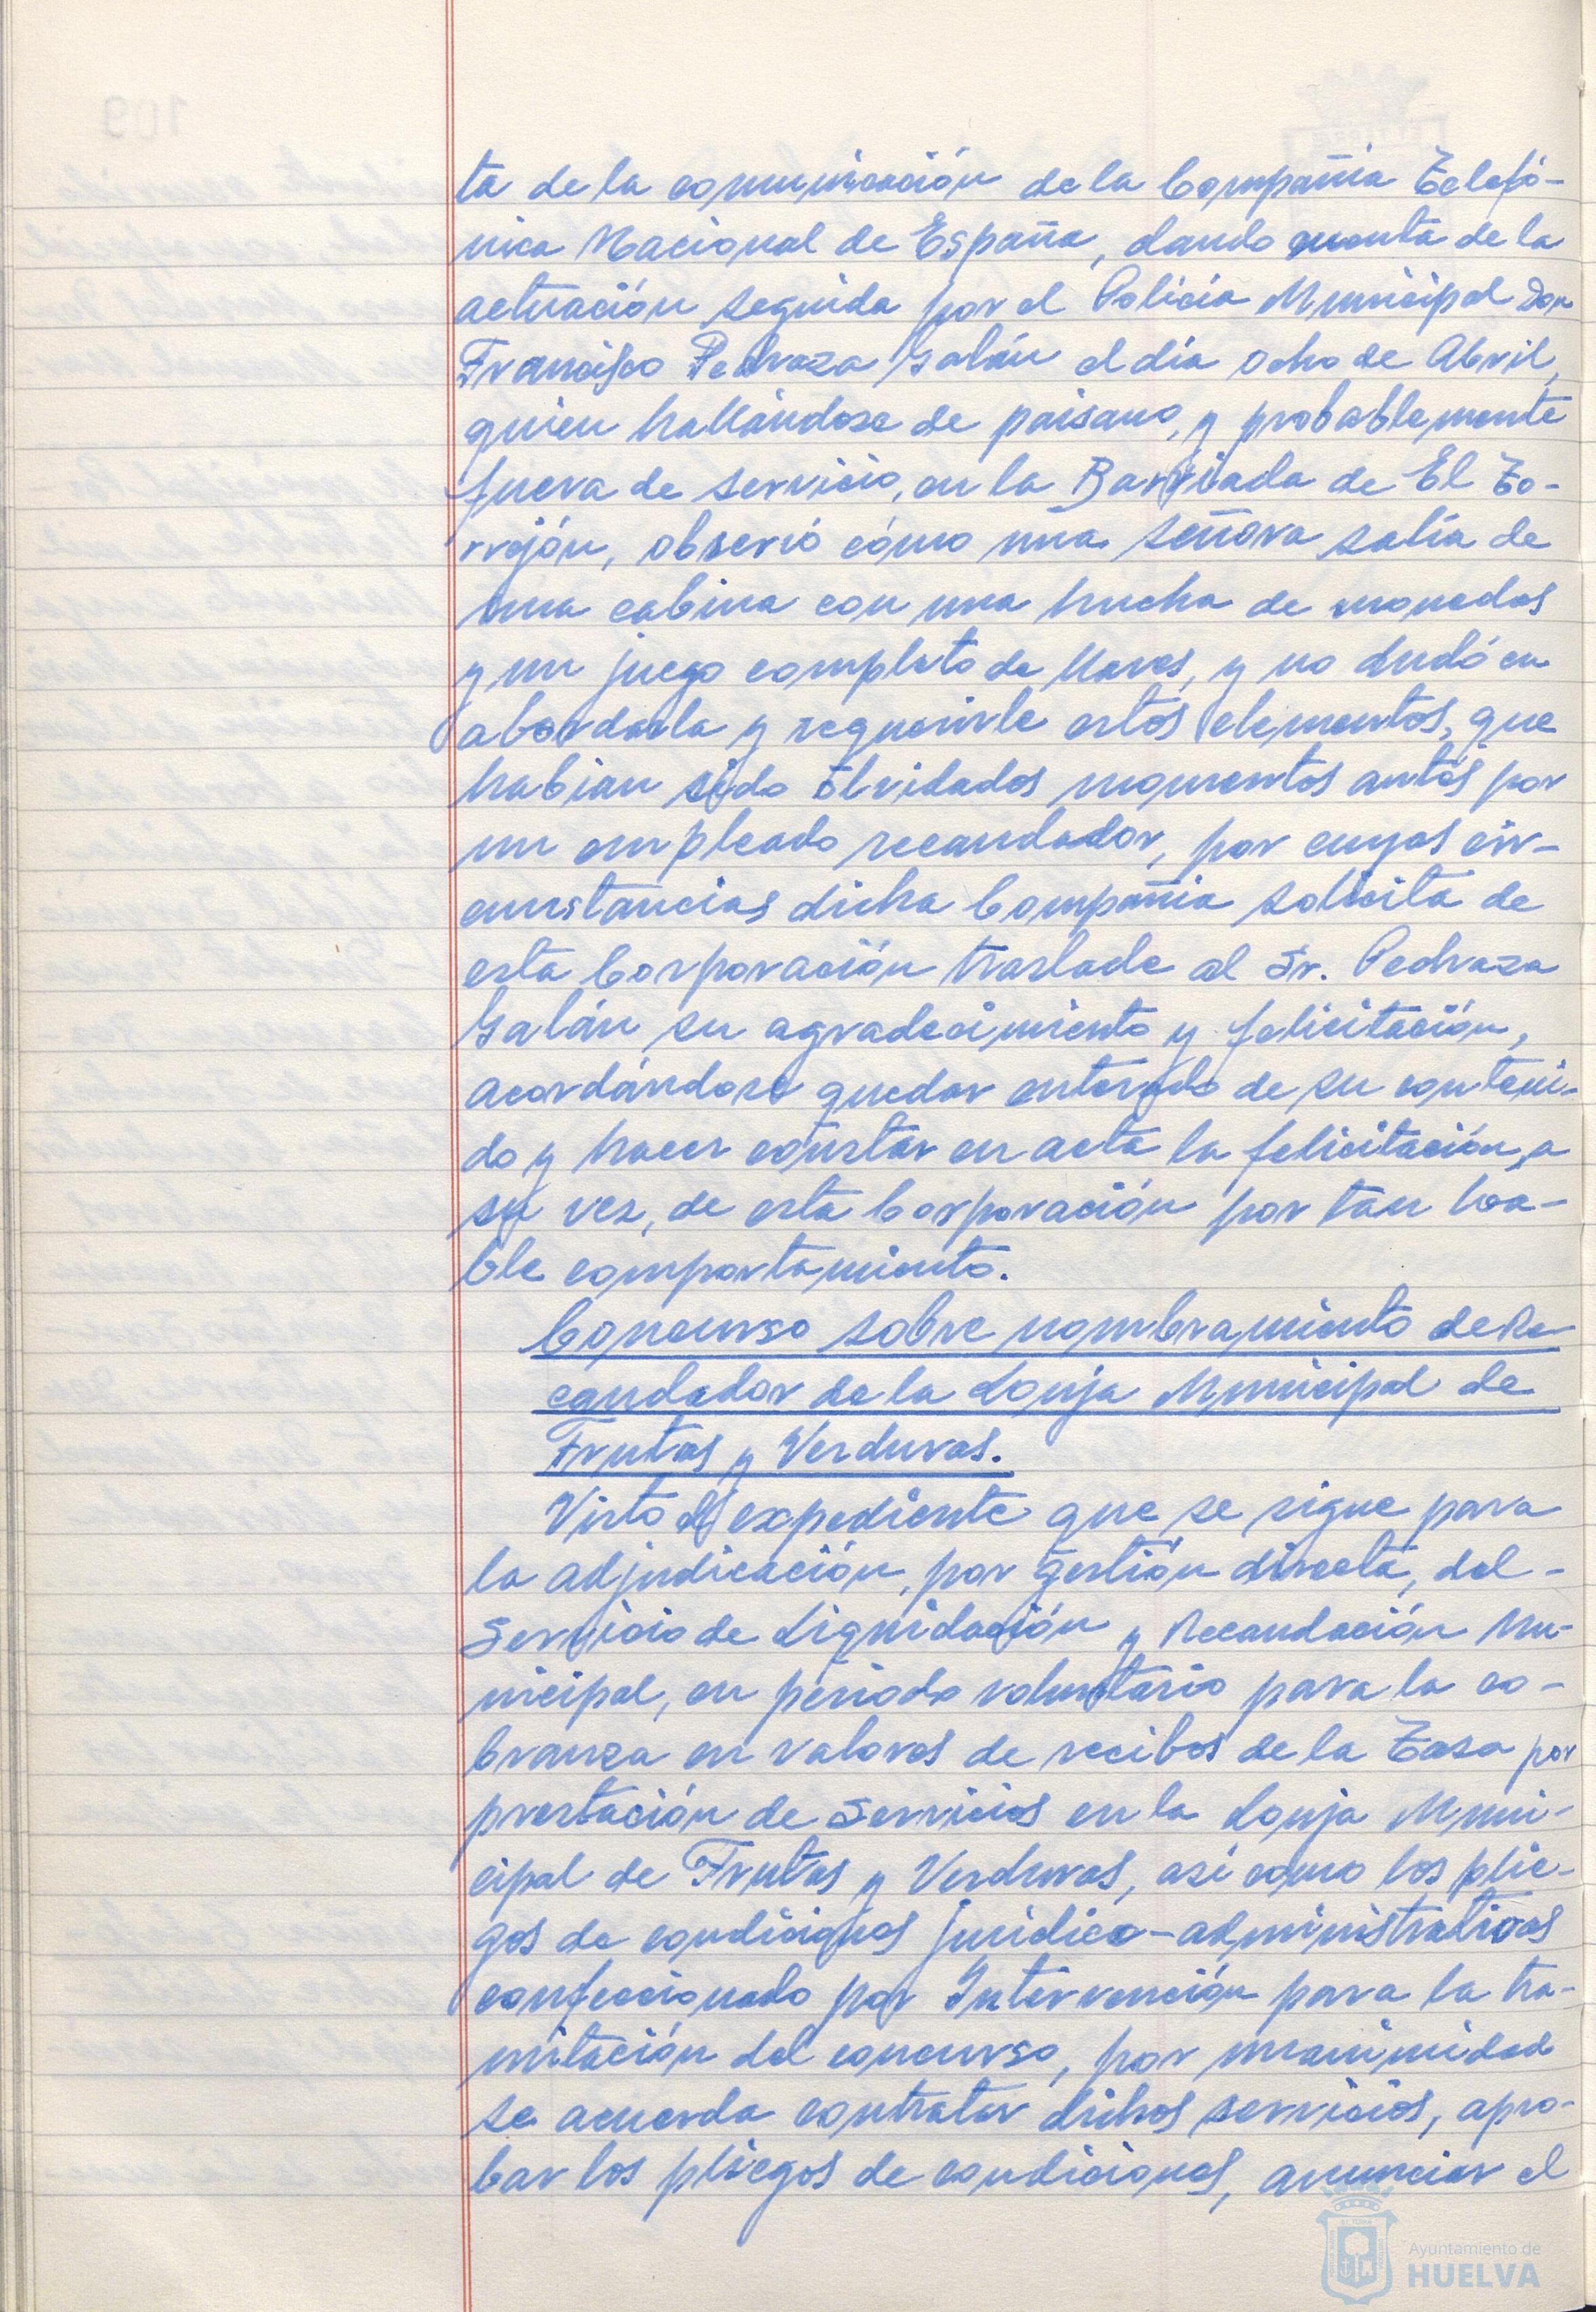 ta de la comunicación de la Compañía Telefó-
nica Nacional de España, dando cuenta de la
actuación seguida por el Policía Municipal Don
Francisco Pedraza Galán el día ocho de Abril,
quien hallándose de paisano, y probablemente
fuera de servicio, en la Barriada de El To-
rrejón, observó cómo una señora salía de
una cabina con una hucha de monedas
y un juego completo de llaves, y no dudó en
abordarla y requerirle estos elementos, que
habían sido olvidados momentos antes por
un empleado recaudador, por cuyas cir-
cunstancias dicha Compañía solicita de
esta Corporación traslade al Sr. Pedraza
Galán su agradecimiento y felicitación,
acordándose quedar enterado de su conteni-
do y hacer constar en acta la felicitación, a
su vez, de esta Corporación por tan loa-
ble comportamiento.
Concurso sobre nombramiento de Re-
caudador de la Lonja Municipal de
Frutas y Verduras.
Visto el expediente que se sigue para
la adjudicación, por gestión directa, del -
Servicio de Liquidación y Recaudación Mu-
nicipal, en período voluntario para la co-
branza en valores de recibos de la Tasa por
prestación de Servicios en la Lonja Muni-
cipal de Frutas y Verduras, así como los plie-
gos de condiciones jurídico-administrativas
confeccionado por Intervención para la tra-
mitación del concurso, por unanimidad
se acuerda contratar dichos servicios, apro-
bar los pliegos de condiciones, anunciar el
Ayuntamiento de
HUELVA
109